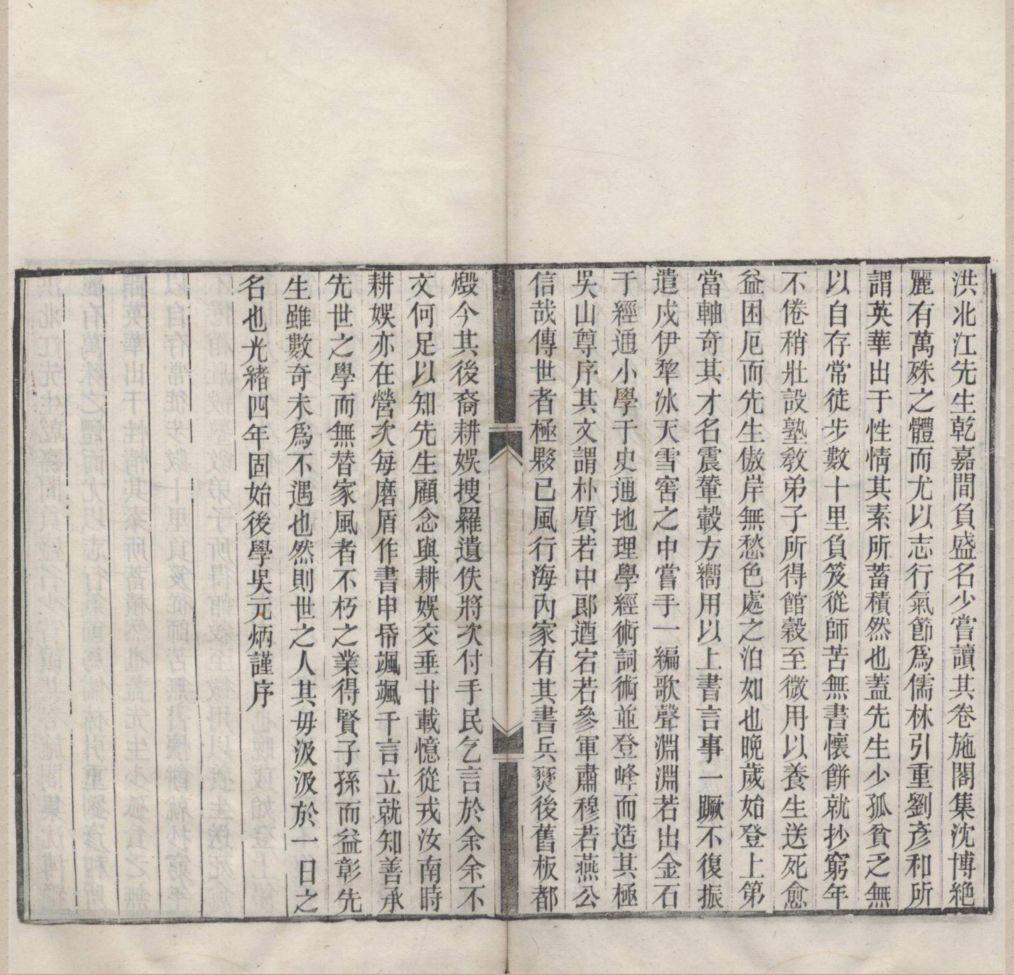 洪北江先生乾嘉間負盛名少嘗讀其卷施閣集沈博絕
麗有萬殊之體而尤以志行氣節爲儒林引重劉彥和所
謂英華出于性情其素所蓄積然也蓋先生少孤貧乏無
以自存常徒步數十里負笈從師苦無書懷餅就抄窮年
不倦稍壯設塾敎弟子所得館穀至微用以養生送死愈
益困厄而先生傲岸無愁色處之泊如也晚歲始登上第
當軸奇其才名震輦轂方嚮用以上書言事一蹶不復振
遣戍伊犂冰天雪窖之中嘗手一編歌聲淵淵若出金石
于經通小學于史通地理學經術詞術並登峰而造其極
吳山尊序其文謂朴質若中郞遒宕若參軍肅穆若燕公
信哉傳世者極夥已風行海內家有其書兵燹後舊板都
燬今其後裔耕娛搜羅遺佚將次付手民乞言於余余不
文何足以知先生顧念與耕娛交垂廿載憶從戎汝南時
耕娛亦在營次每磨盾作書申昏颯颯千言立就知善承
先世之學而無替家風者不朽之業得賢子孫而益彰先
生雖數奇未爲不遇也然則世之人其毋汲汲於一日之
名也光緒四年固始後學吳元炳謹序